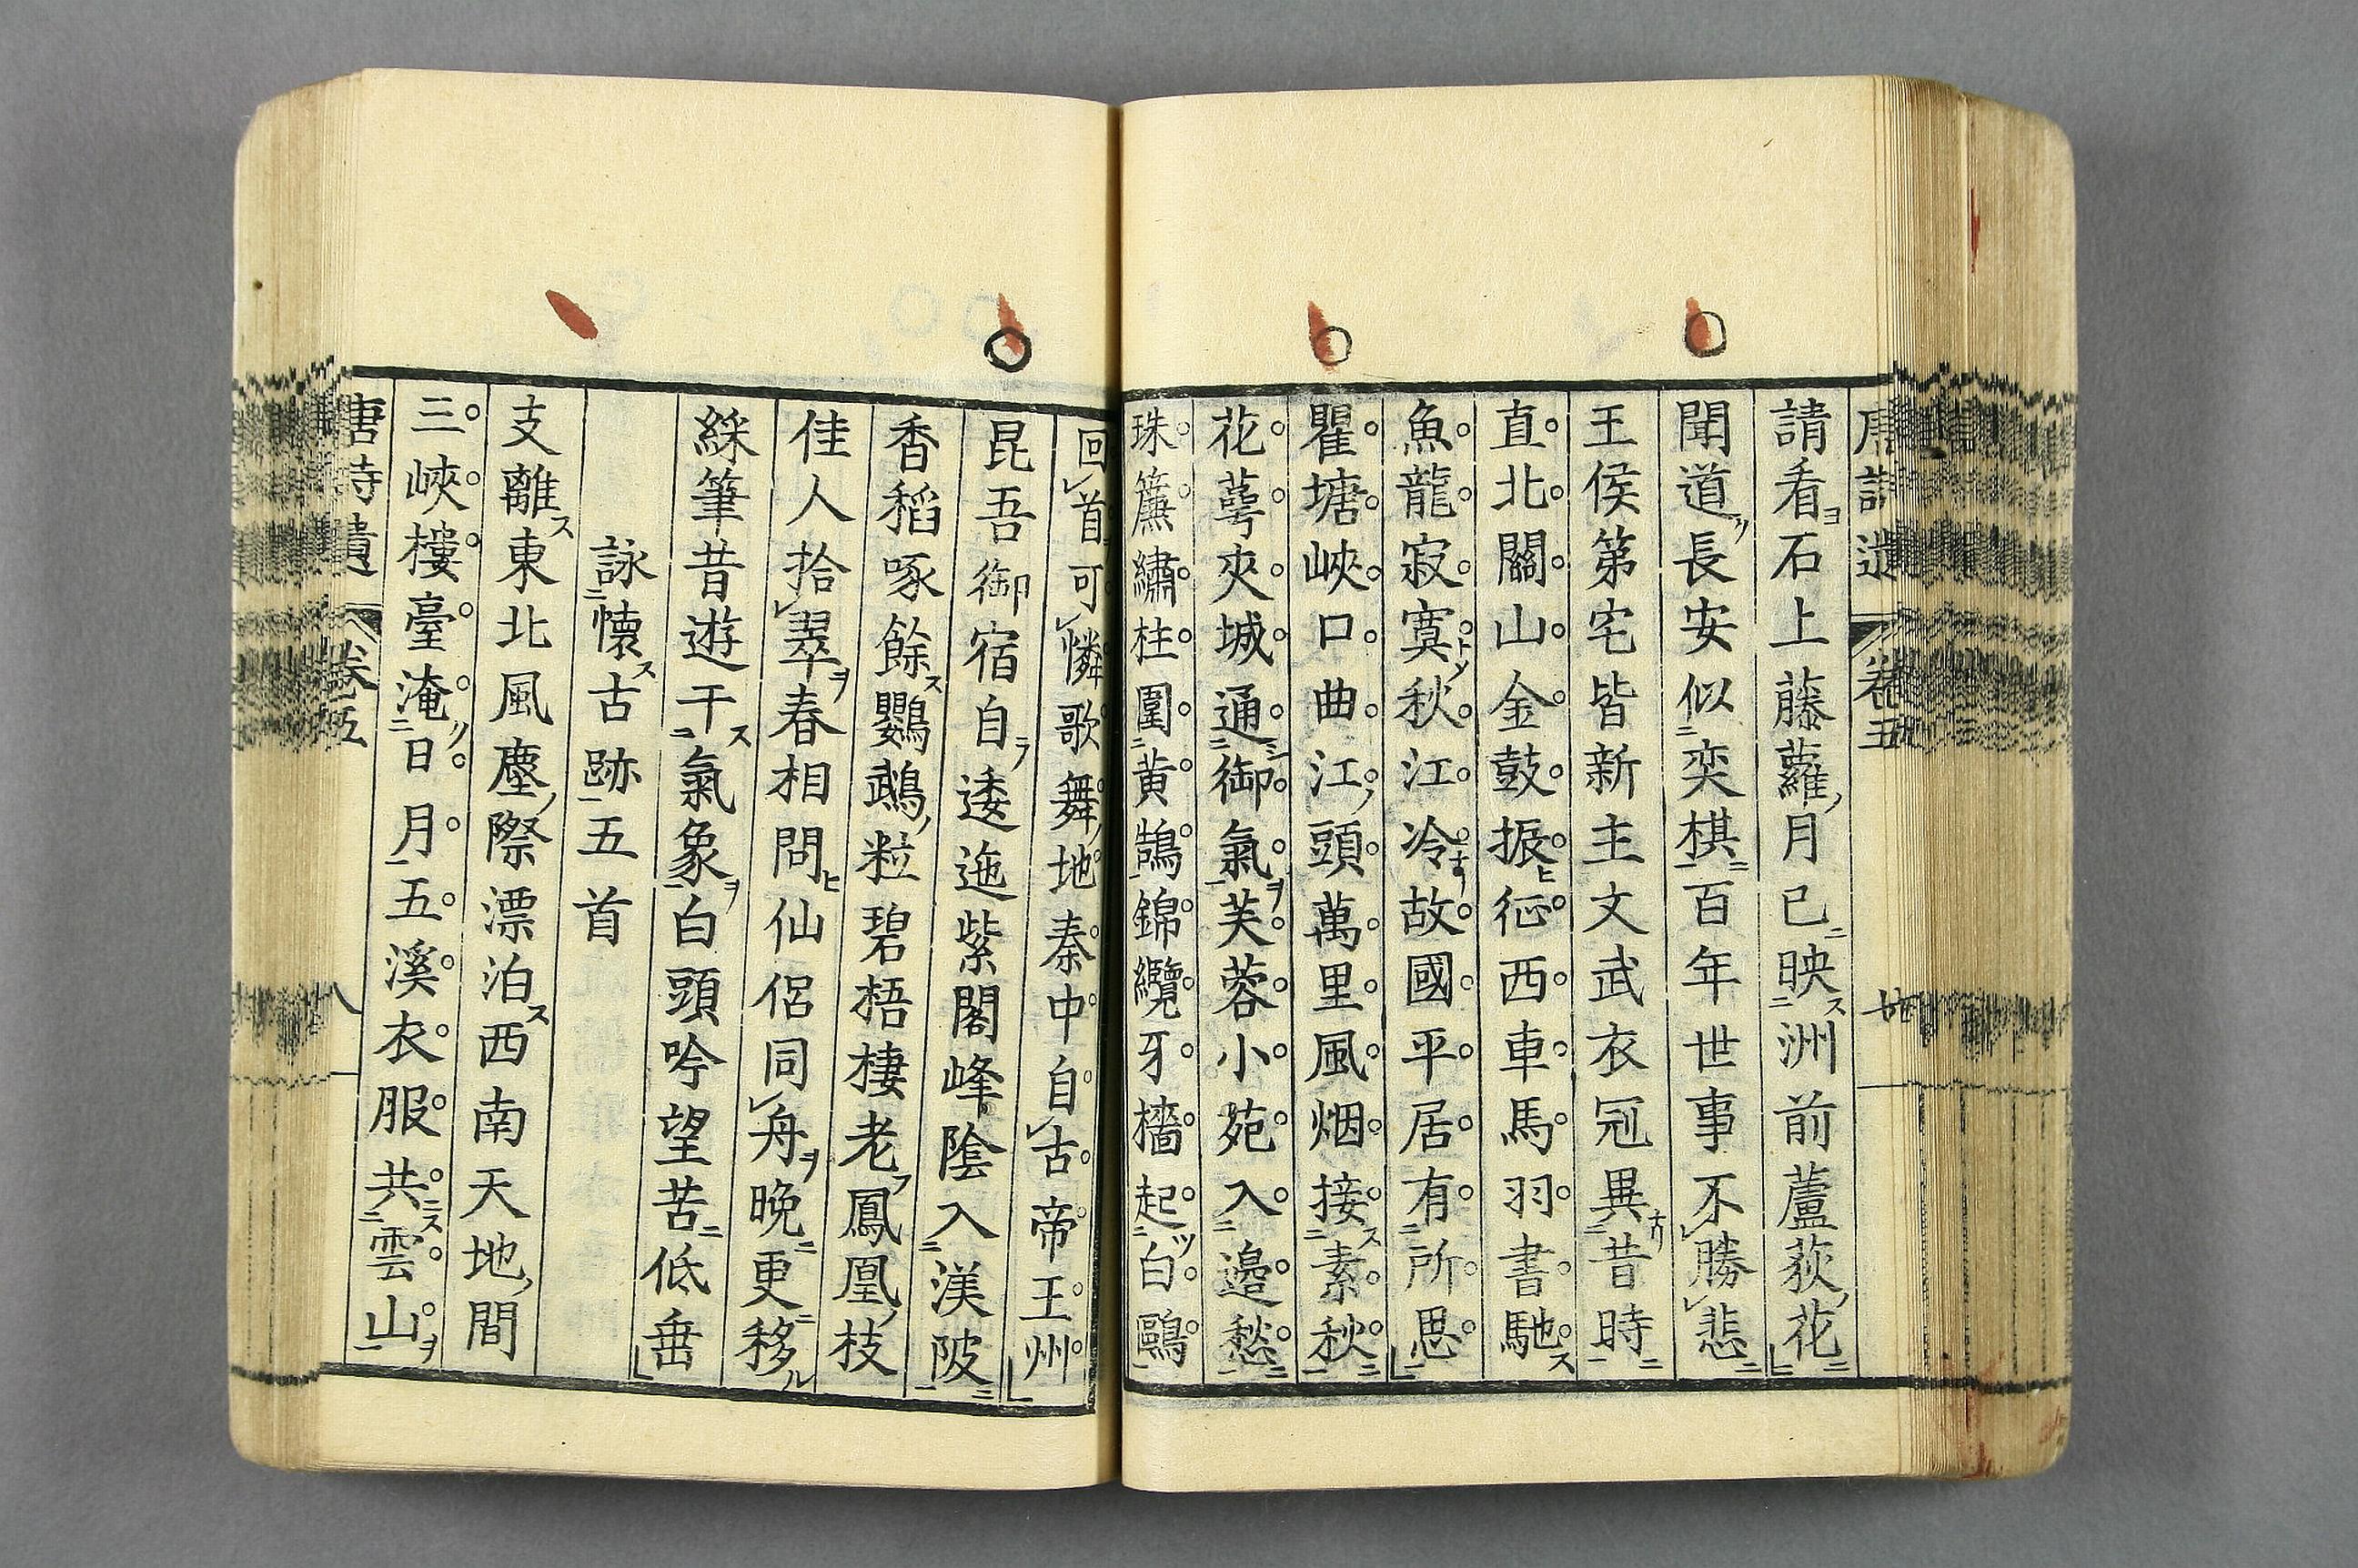 請看石上藤蘿月已映洲前蘆荻花
聞道長安似奕棋百年世事不勝悲
王侯第宅皆新主文武衣冠異昔時
直北關山金鼓振征西車馬羽書馳
魚龍寂寞秋江冷故國平居有所思
瞿塘峽口曲江頭萬里風烟接素秋
花萼夾城通御氣芙蓉小苑入邉愁
珠簾繡柱圍黄鵠錦纜牙檣起白鷗
回首可憐歌舞地秦中自古帝王州
昆吾御宿自逶迤紫閣峰陰入渼陂
香稻啄餘鸚鵡粒碧梧棲老鳳凰枝
佳人拾翠春相問仙侶同舟晚更移
綵筆昔遊干氣象白頭吟望苦低垂
詠懷古跡五首
支離東北風塵際漂泊西南天地間
三峽樓臺淹日月五溪衣服共雲山
唐詩遺 卷五